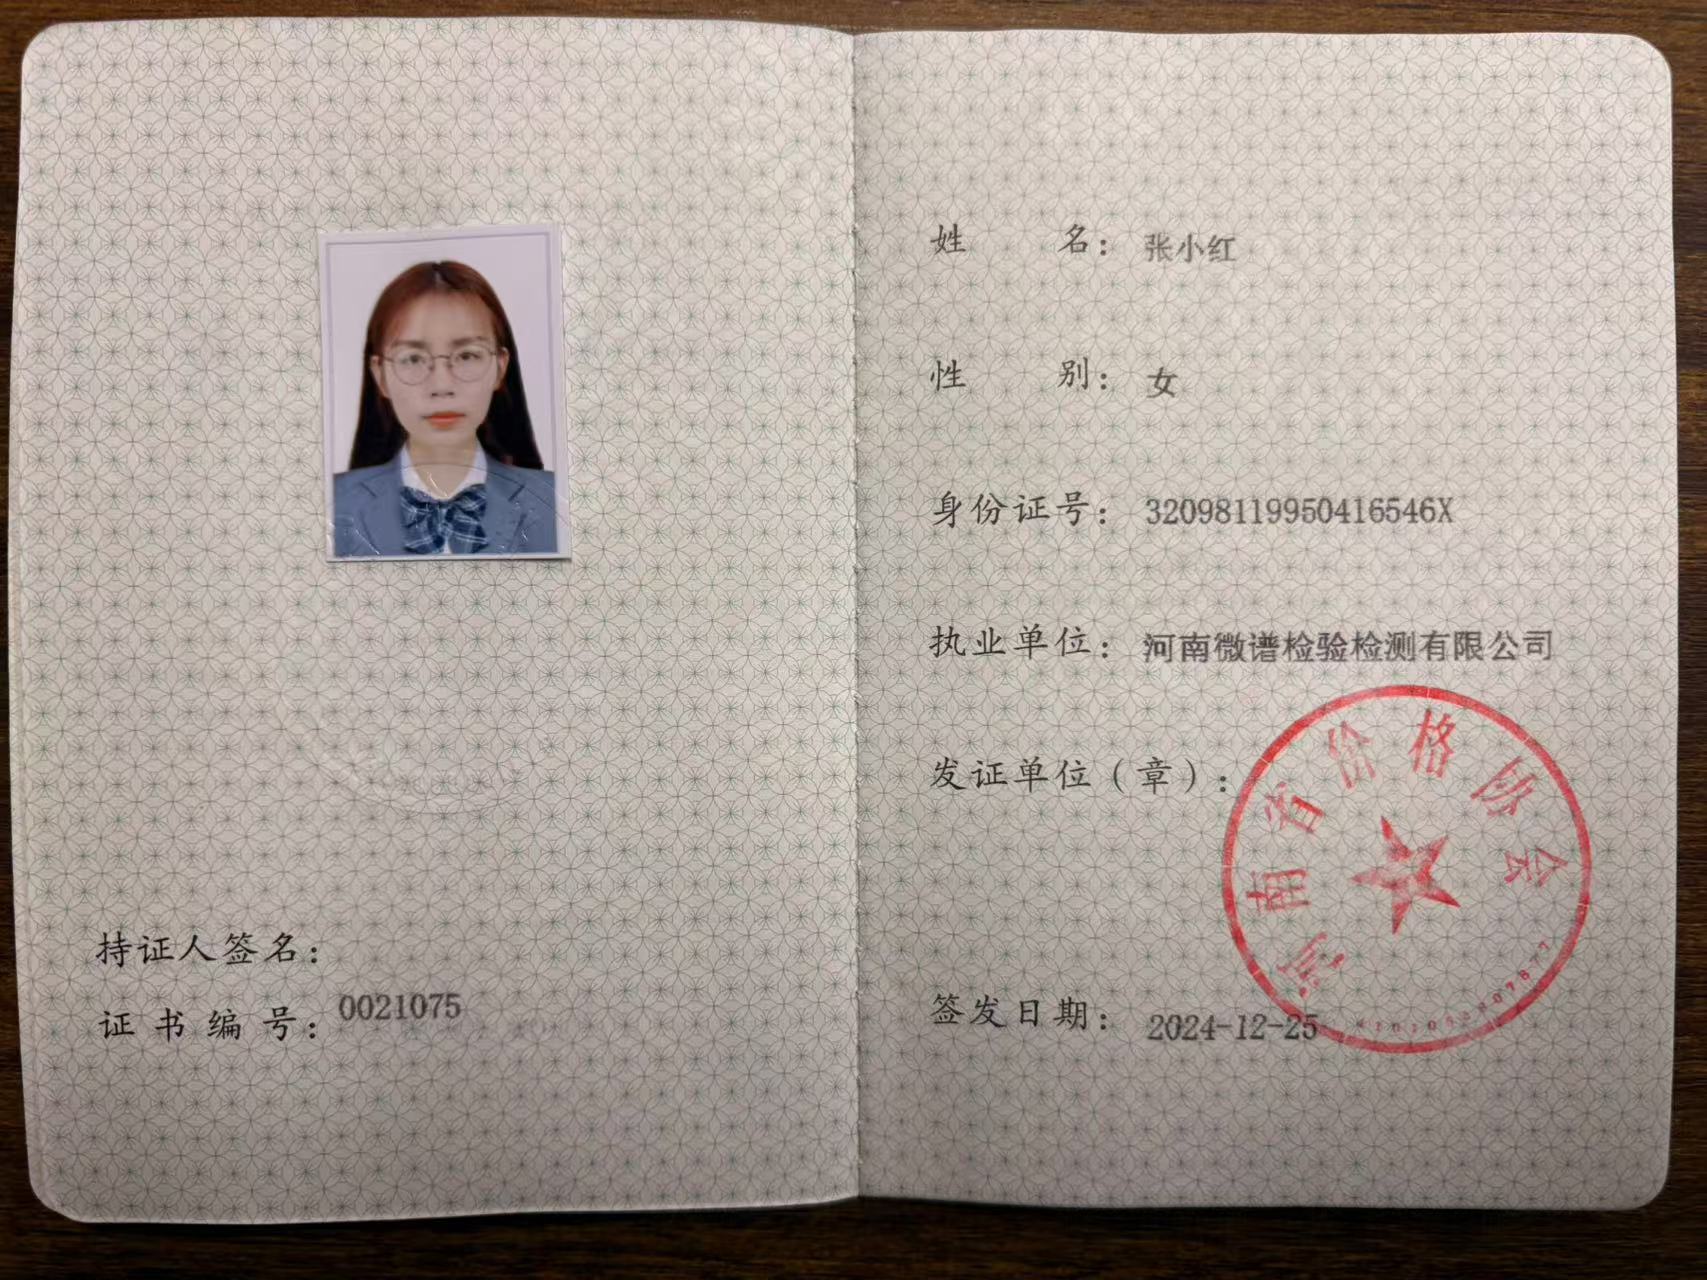 持证人签名：
证书编号：0021075
姓名：张小红
性别：女
身份证号：32098119950416546X
执业单位：河南微谱检验检测有限公司
发证单位（章）：
河南省价格协会
签发日期：2024-12-25